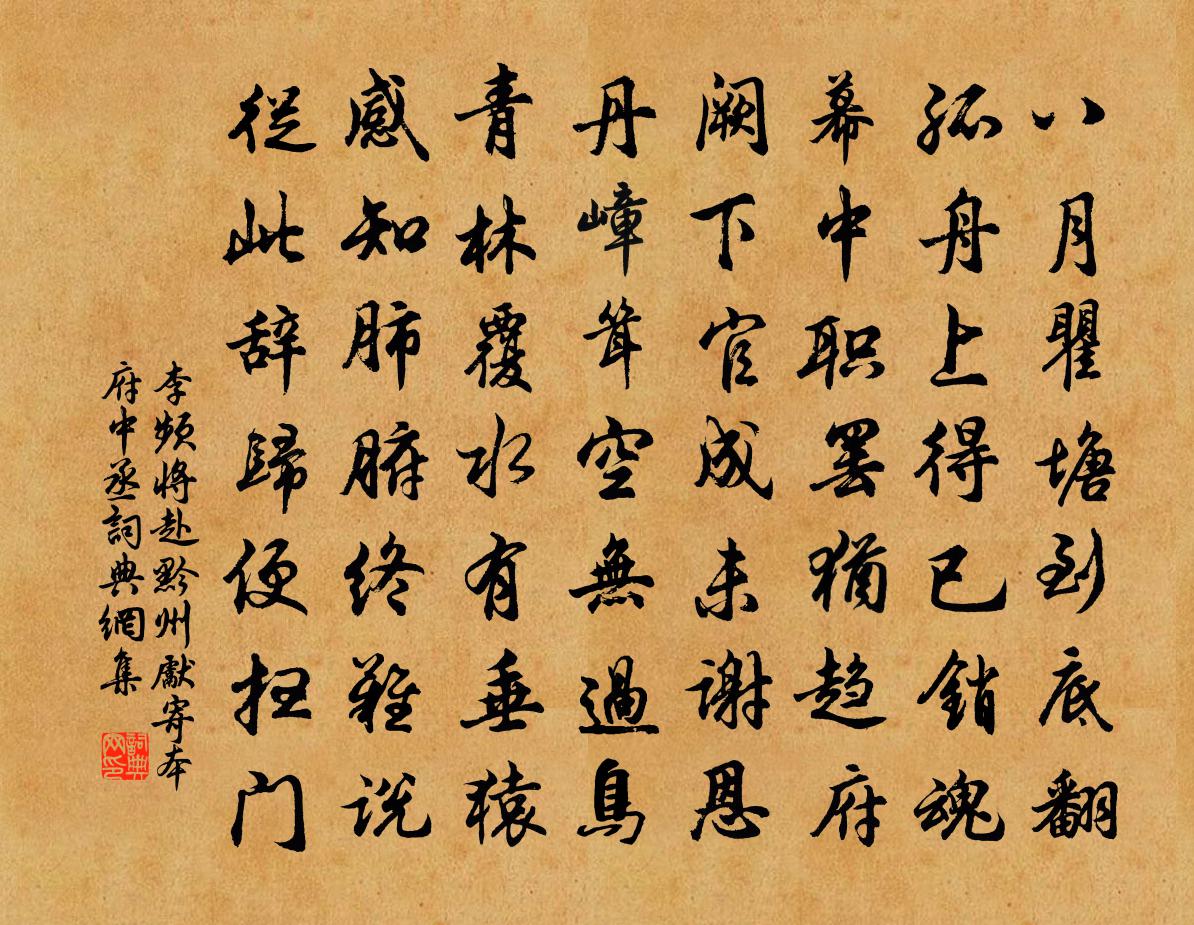 八月瞿塘到底翻
孤舟上得已銷魂
幕中职罢猶趋府
阙下官成未谢恩
丹嶂耸空無過鳥
青林覆水有垂猿
感知肺腑终难说
從此辞歸便扫门
李频將赴黔州獻寄本
府中丞詞典網集
詞典
网印